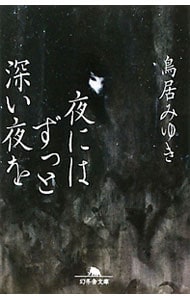 鳥居みゆき
夜には
ずっと
深い夜を
幻冬舎文庫